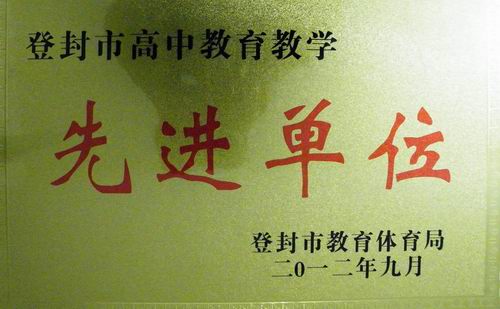 登封市高中教育教学
先进单位
登封市教育体育局
二0一二年九月